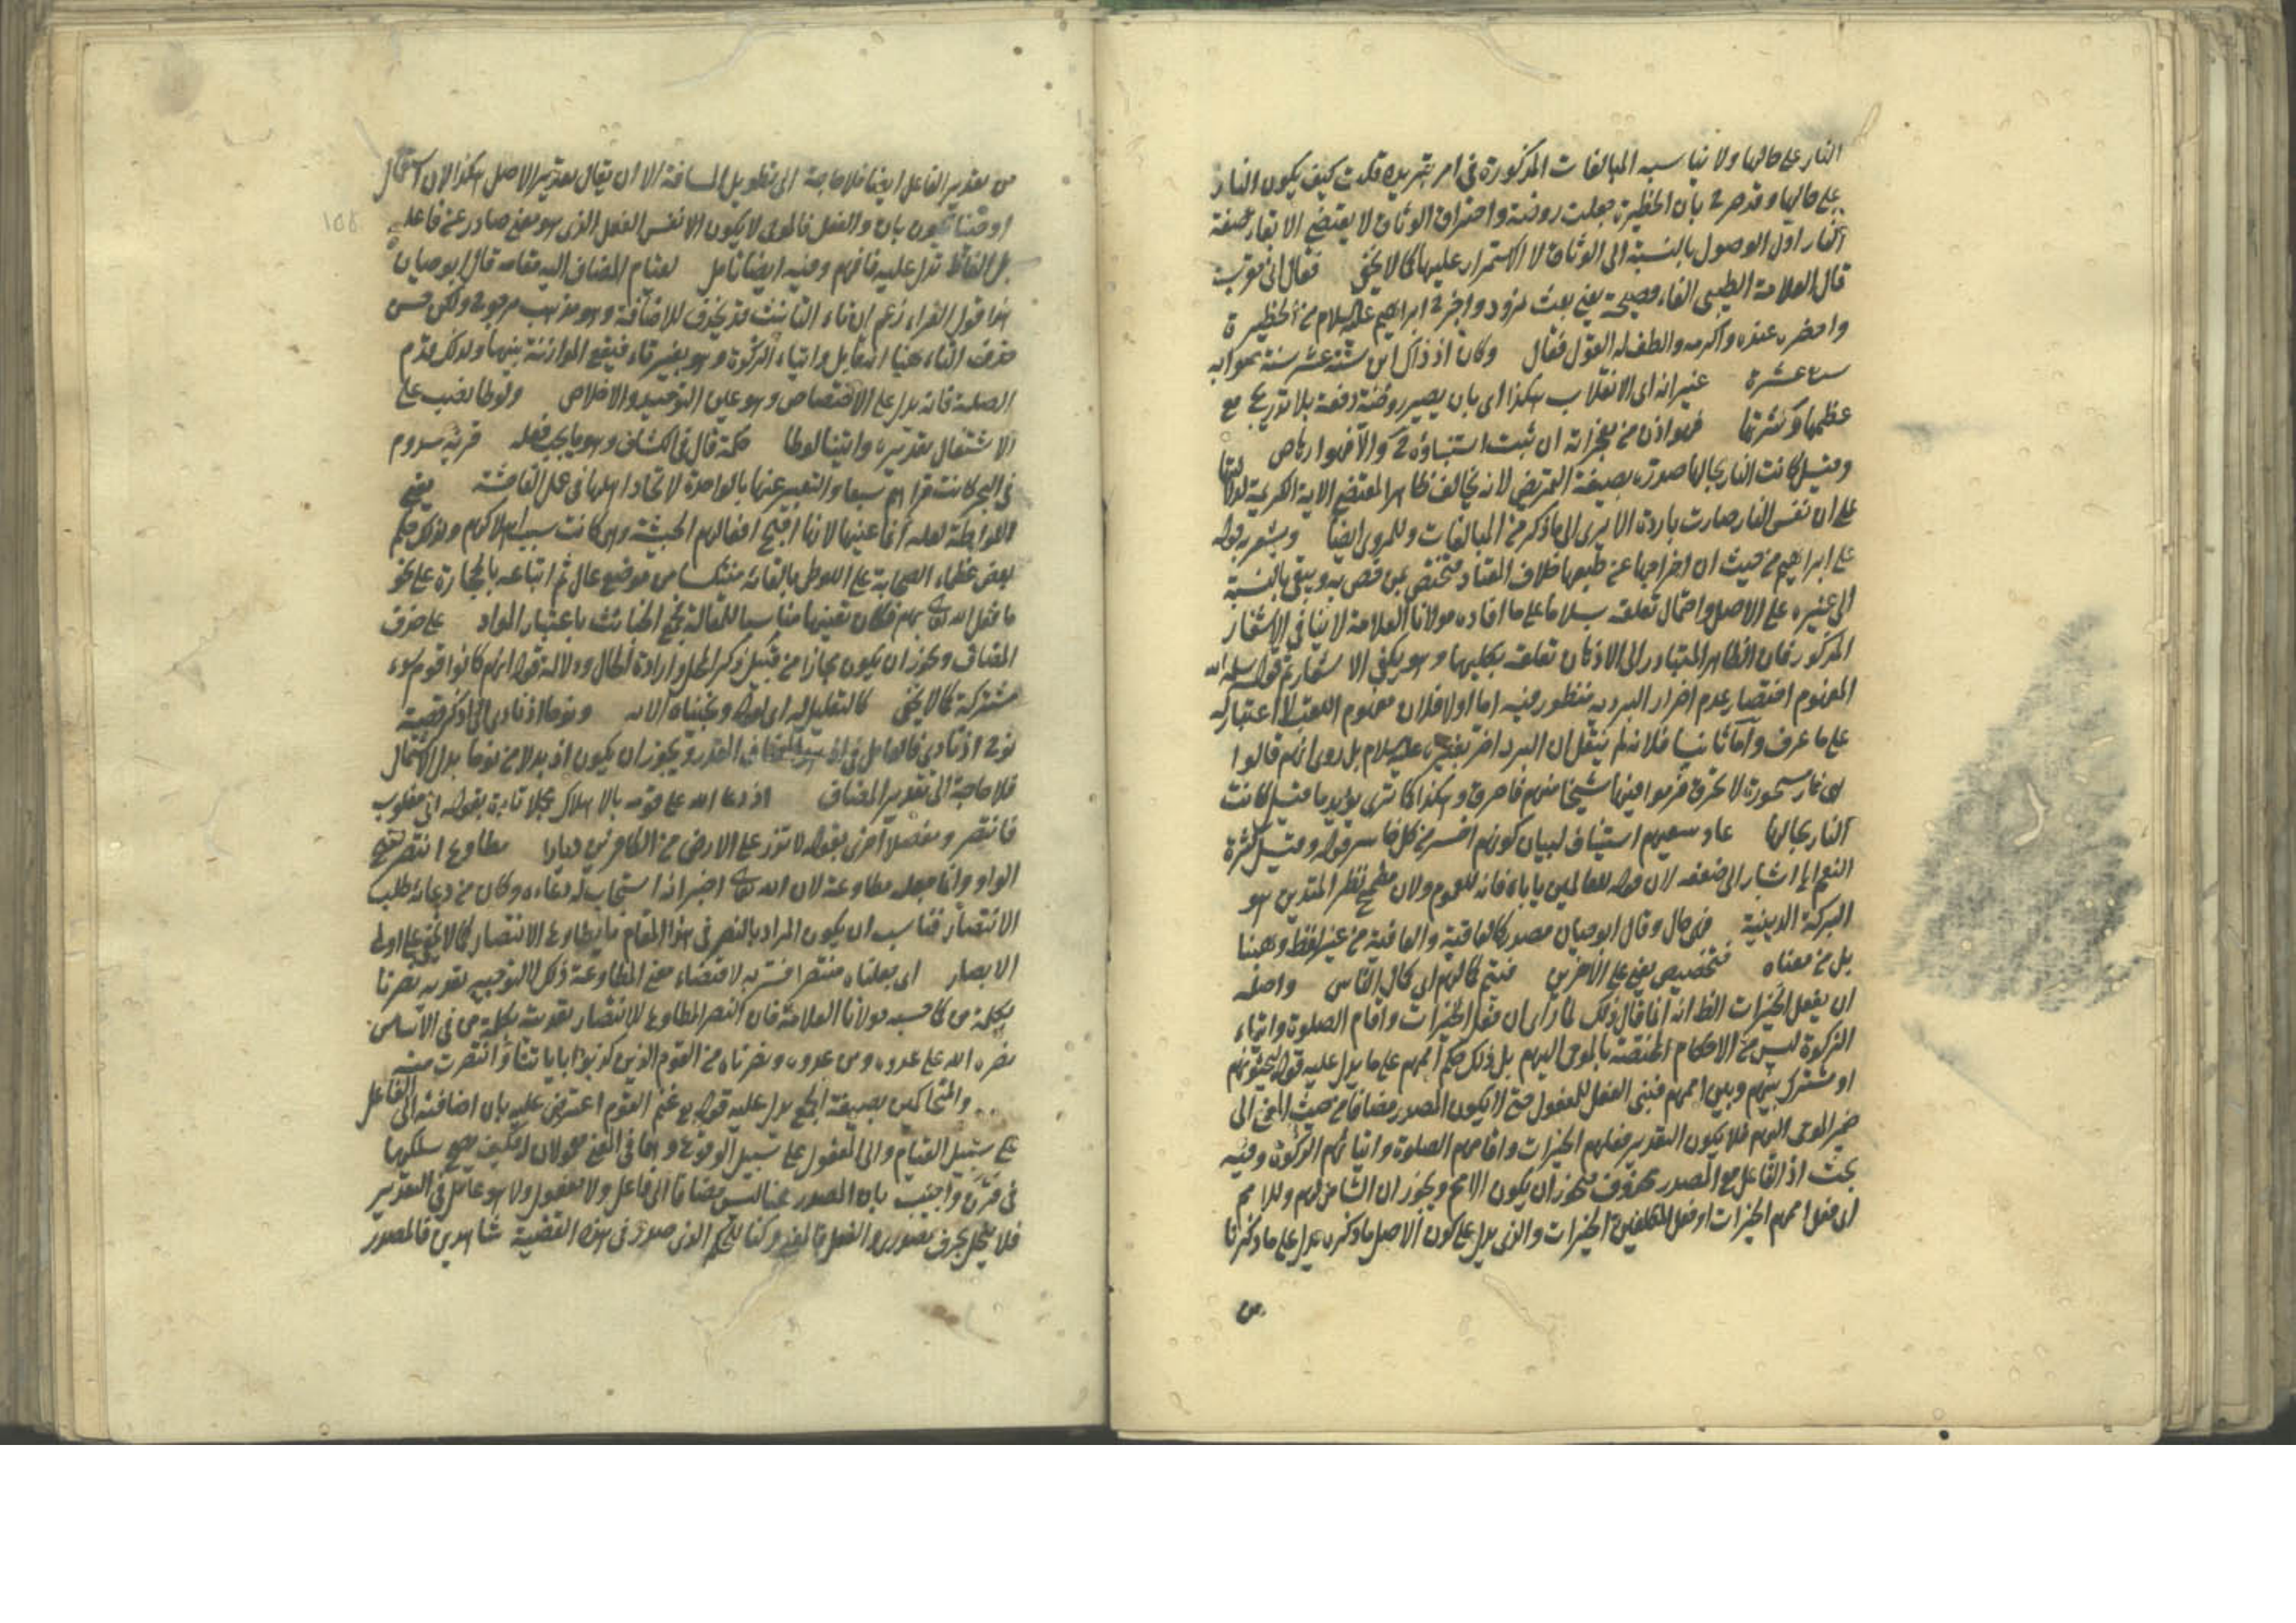 النار على حالها ولا يناسبه المبالغات المذكورة في امر تبريده قلت كيف يكون النار
على حالها وقد صرح بان الحظيرة جعلت روضة واحتراق الوثاق لا يقتضي الا بقاء صفة
النار اول الوصول بالنسبة الى الوثاق لا الاستمرار عليها كما لا يخفى فقال اني مقرب
قال العلامة الطيبي الفاء فصيحة يعني بعث نمرود واخرج ابراهيم عليه السلام من الحظيرة
واحضره عنده واكرمه والطف له القول فقال وكان اذ ذاك ابن ستة عشر سنة
عشرة غير انه اي الانقلاب هكذا اي بان يصير روضة دفعة بلا تدريج مع
عظمها وكثرتها فهو اذن من معجزاته ان ثبت استنباؤه ح والا فهو ارهاص
وقيل كانت النار بحالها صوره بصيغة التمريض لانه يخالف ظاهر المقتضى الاية الكريمة
على ان نفس النار صارت باردة الا يرى الى ما ذكر من المبالغات وللمروى ايضا ويشعر به قوله
على ابراهيم من حيث ان اخراجها عن طبعها خلاف المعتاد فيختص بمن خص به ويبقى بالنسبة
الى غيره على الاصل واحتمال تعلقه بسلاما على ما افاده مولانا العلامة لا ينافي الاشعار
المذكور فان الظاهر المتبادر الى الاذهان تعلقه بكليهما وهو يكفي الاشعار ثم قوله
المفهوم اختصار عدم اضرار البرد به منظور فيه اما اولا فلان مفهوم اللقب لا اعتبار له
على ما عرف واما ثانيا فلانه لم ينقل ان البرد اضر بغيره عليه السلام بل روى انهم قالوا
هي نار مسحورة لا تحرق فرموا فيها شيخا منهم فاحترق وهكذا كما ترى يؤيد ما قيل كانت
النار بحالها عاد سعيهم استيناف لبيان كونهم اخسر من كل خاسر قوله وقيل كثرة
النعم انما اشار الى ضعفه لان قوله للعالمين ياباه فانه للعموم ولان مطمح نظر المتدين هو
البركة الدينية فهي حال وقال ابو حيان مصدر كالعاقبة والعافية من غير لفظ وهبنا
بل من معناه فتخصيص يعني على الاخيرين فيتم كمالهم اي كمال الناس واصله
ان يفعل الخيرات الظ انه انما قال ذلك لما راى ان فعل الخيرات واقام الصلوة وايتاء
الزكوة ليس من الاحكام المختصة بالموحى اليهم بل ذلك حكم اممهم على ما يدل عليه قوله
او مشترك بينهم وبين اممهم فبني الفعل للمفعول حتى لا يكون المصدر مضافا من حيث المعنى الى
ضمير الموحى اليهم فلا يكون التقدير فعلهم الخيرات واقامهم الصلوة وايتائهم الزكوة وفيه
بحث اذ الفاعل مع المصدر محذوف فيجوز ان يكون الامم ويجوز ان الشامل لهم وللامم
اي فعل اممهم الخيرات او فعل المكلفين الخيرات والذي يدل على كون الاصل ما ذكره يدل على ما ذكرنا
من
من تقدير الفاعل ايضا فلا حاجة الى تطويل المسافة الا ان يقال تقدير الاصل هكذا لان
بان والفعل فالموحى لا يكون الا نفس الفعل الذي هو معنى صادر عن فاعله
بل الفاظ تدل عليه فافهم وفيه ايضا تامل لقيام المضاف اليه مقامه قال ابو حيان
هذا قول الفراء زعم ان تاء التانيث قد تحذف للاضافة وهو مذهب مرجوح ولكن حسن
حذف التاء هنا ايتاء الزكوة وهو بغير تاء فيقع الموازنة بينهما ولذلك قدم
الصلة فانه يدل على الاختصاص وهو عين التوحيد والاخلاص ولوطا نصب على
الاشتغال تقديره واتينا لوطا حكمة قال في الكشاف وهو ما يجب فعله قرية سدوم
في البحر كانت قراهم سبعا والتعبير عنها بالواحدة لاتحاد اهلها في عمل الفاحشة يعني
اللواطة لعله انما عينها لانها اقبح افعالهم الخبيثة وهي كانت سبب اهلاكهم ولذلك حكم
بعض عظماء الصحابة على اللوطي بالقائه منتكسا من موضع عال ثم اتباعه بالحجارة على نحو
ما فعل الله تعالى بهم فكان تعيينها مناسبا للمقالة بجمع الخبائث باعتبار المواد على حذف
المضاف ويجوز ان يكون مجازا من قبيل ذكر المحل وارادة الحال ودلالة قوله انهم كانوا قوم سوء
مشتركة كما لا يخفى كالتعليل له اي لقوله ونجيناه الاية ونوحا اذ نادى اي اذكر قصة
نوح اذ نادى فالعامل في اذ المضاف المقدر ويجوز ان يكون اذ بدلا من نوحا بدل الاشتمال
فلا حاجة الى تقدير المضاف اذ دعا الله على قومه بالاهلاك مجملا تارة بقوله اني مغلوب
فانتصر ومفصلا اخرى بقوله لا تذر على الارض من الكافرين ديارا مطاوع انتصر بفتح
الواو وانما جعله مطاوعه لان الله تعالى اخبر انه استجاب له دعاءه وكان من دعائه طلب
الانتصار فناسب ان يكون المراد بالنصر في هذا المقام ما يطاوع الانتصار كما لا يخفى على اولي
الابصار اي جعلناه منتصرا فسر به لاقتضاء معنى المطاوعة ذلك لا لتوجيه تعديه نصرنا
بكلمة من كما حسبه مولانا العلامة فان النصر المطاوع للانتصار تعديته بكلمة من في الاساس
نصره الله على عدوه ومن عدوه ونصرناه من القوم الذين كذبوا باياتنا وانتصرت منه
والمتحاكمين بصيغة الجمع يدل عليه قوله غنم القوم اعترض عليه بان اضافته الى الفاعل
على سبيل القيام والى المفعول على سبيل الوقوع وهما في المعنى معمولان له فكيف يصح سلكهما
في قرن واجيب بان المصدر هنا ليس مضافا الى فاعل ولا مفعول ولا هو عامل في التقدير
فلا ينحل بحرف مصدري والفعل فالمعنى وكنا للحكم الذي صدر في هذه القضية شاهدين فالمصدر